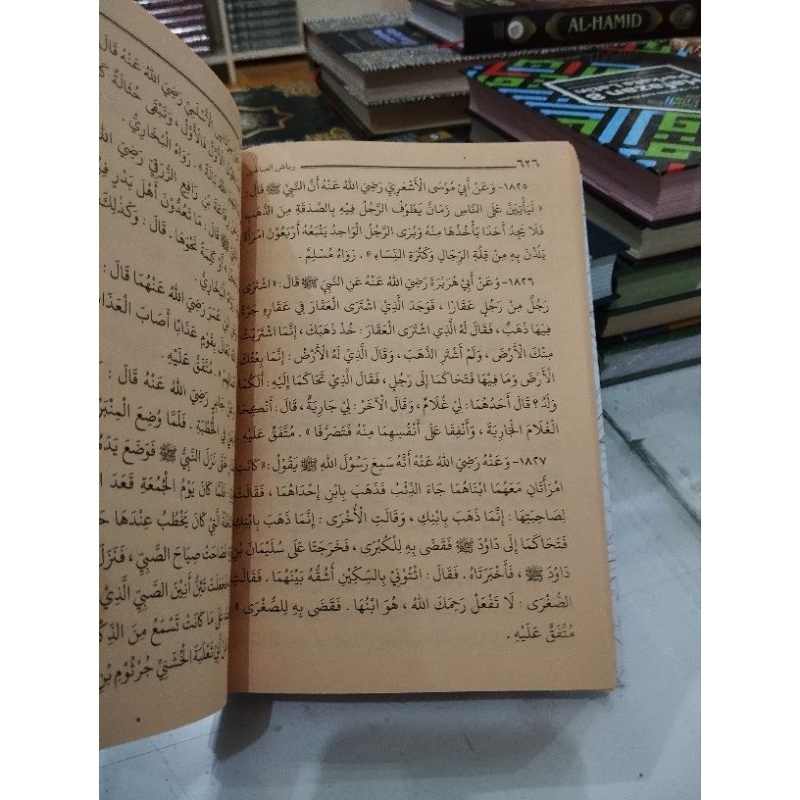 AL-HAMID
٦٢٦ رياض الصالحين
١٨٢٥- وَعَنْ أَبِيْ مُوْسَى الْأَشْعَرِيِّ رَضِيَ اللهُ عَنْهُ أَنَّ النَّبِيَّ ﷺ قَالَ:
« لَيَأْتِيَنَّ عَلَى النَّاسِ زَمَانٌ يَطُوْفُ الرَّجُلُ فِيْهِ بِالصَّدَقَةِ مِنَ الذَّهَبِ
فَلَا يَجِدُ أَحَدًا يَأْخُذُهَا مِنْهُ وَيُرَى الرَّجُلُ الْوَاحِدُ يَتْبَعُهُ أَرْبَعُوْنَ امْرَأَةً
يَلُذْنَ بِهِ مِنْ قِلَّةِ الرِّجَالِ وَكَثْرَةِ النِّسَاءِ» . رَوَاهُ مُسْلِمٌ .
١٨٢٦- وَعَنْ أَبِيْ هُرَيْرَةَ رَضِيَ اللهُ عَنْهُ عَنِ النَّبِيِّ ﷺ قَالَ: «اشْتَرَى
رَجُلٌ مِنْ رَجُلٍ عَقَارًا ، فَوَجَدَ الَّذِيْ اشْتَرَى الْعَقَارَ فِيْ عَقَارِهِ جَرَّةً
فِيْهَا ذَهَبٌ ، فَقَالَ لَهُ الَّذِي اشْتَرَى الْعَقَارَ : خُذْ ذَهَبَكَ ، إِنَّمَا اشْتَرَيْتُ
مِنْكَ الْأَرْضَ ، وَلَمْ أَشْتَرِ الذَّهَبَ ، وَقَالَ الَّذِيْ لَهُ الْأَرْضُ : إِنَّمَا بِعْتُكَ
الْأَرْضَ وَمَا فِيْهَا فَتَحَاكَمَا إِلَى رَجُلٍ ، فَقَالَ الَّذِيْ تَحَاكَمَا إِلَيْهِ : أَلَكُمَا
وَلَدٌ ؟ قَالَ أَحَدُهُمَا : لِيْ غُلَامٌ ، وَقَالَ الْآخَرُ : لِيْ جَارِيَةٌ ، قَالَ : أَنْكِحَا
الْغُلَامَ الْجَارِيَةَ ، وَأَنْفِقَا عَلَى أَنْفُسِهِمَا مِنْهُ فَتَصَرَّفَا» . مُتَّفَقٌ عَلَيْهِ
١٨٢٧- وَعَنْهُ رَضِيَ اللهُ عَنْهُ أَنَّهُ سَمِعَ رَسُوْلَ اللهِ ﷺ يَقُوْلُ : «كَانَتِ
امْرَأَتَانِ مَعَهُمَا ابْنَاهُمَا جَاءَ الذِّئْبُ فَذَهَبَ بِابْنِ إِحْدَاهُمَا ، فَقَالَتْ
لِصَاحِبَتِهَا : إِنَّمَا ذَهَبَ بِابْنِكِ ، وَقَالَتِ الْأُخْرَى : إِنَّمَا ذَهَبَ بِابْنِكِ
فَتَحَاكَمَا إِلَى دَاوُدَ ﷺ فَقَضَى بِهِ لِلْكُبْرَى ، فَخَرَجَتَا عَلَى سُلَيْمَانَ بْنِ
دَاوُدَ ﷺ ، فَأَخْبَرَتَاهُ . فَقَالَ : ائْتُوْنِيْ بِالسِّكِّيْنِ أَشُقُّهُ بَيْنَهُمَا . فَقَالَتِ
الصُّغْرَى : لَا تَفْعَلْ رَحِمَكَ اللهُ ، هُوَ ابْنُهَا . فَقَضَى بِهِ لِلصُّغْرَى »
مُتَّفَقٌ عَلَيْهِ .
الْأَسْلَمِيِّ رَضِيَ اللهُ عَنْهُ قَالَ
الْأَوَّلُ فَالْأَوَّلُ ، وَتَبْقَى حُثَالَةٌ
رَوَاهُ الْبُخَارِيُّ .
بْنِ رَافِعٍ الزُّرَقِيِّ رَضِيَ اللهُ
قَالَ : مَا تَعُدُّوْنَ أَهْلَ بَدْرٍ
كَلِمَةً نَحْوَهَا . قَالَ : وَكَذٰلِكَ
الْبُخَارِيُّ .
عُمَرَ رَضِيَ اللهُ عَنْهُمَا قَالَ :
بِقَوْمٍ عَذَابًا أَصَابَ الْعَذَابُ
مُتَّفَقٌ عَلَيْهِ .
جَابِرٍ رَضِيَ اللهُ عَنْهُ قَالَ :
فِي الْخُطْبَةِ . فَلَمَّا وُضِعَ الْمِنْبَرُ
حَتَّى نَزَلَ النَّبِيُّ ﷺ فَوَضَعَ يَدَهُ
فَلَمَّا كَانَ يَوْمُ الْجُمُعَةِ قَعَدَ
الَّتِيْ كَانَ يَخْطُبُ عِنْدَهَا
فَصَاحَتْ صِيَاحَ الصَّبِيِّ ، فَنَزَلَ
تَئِنُّ أَنِيْنَ الصَّبِيِّ الَّذِيْ
عَلَى مَا كَانَتْ تَسْمَعُ مِنَ الذِّكْرِ
ثَعْلَبَةَ الْخُشَنِيِّ جُرْثُوْمِ بْنِ